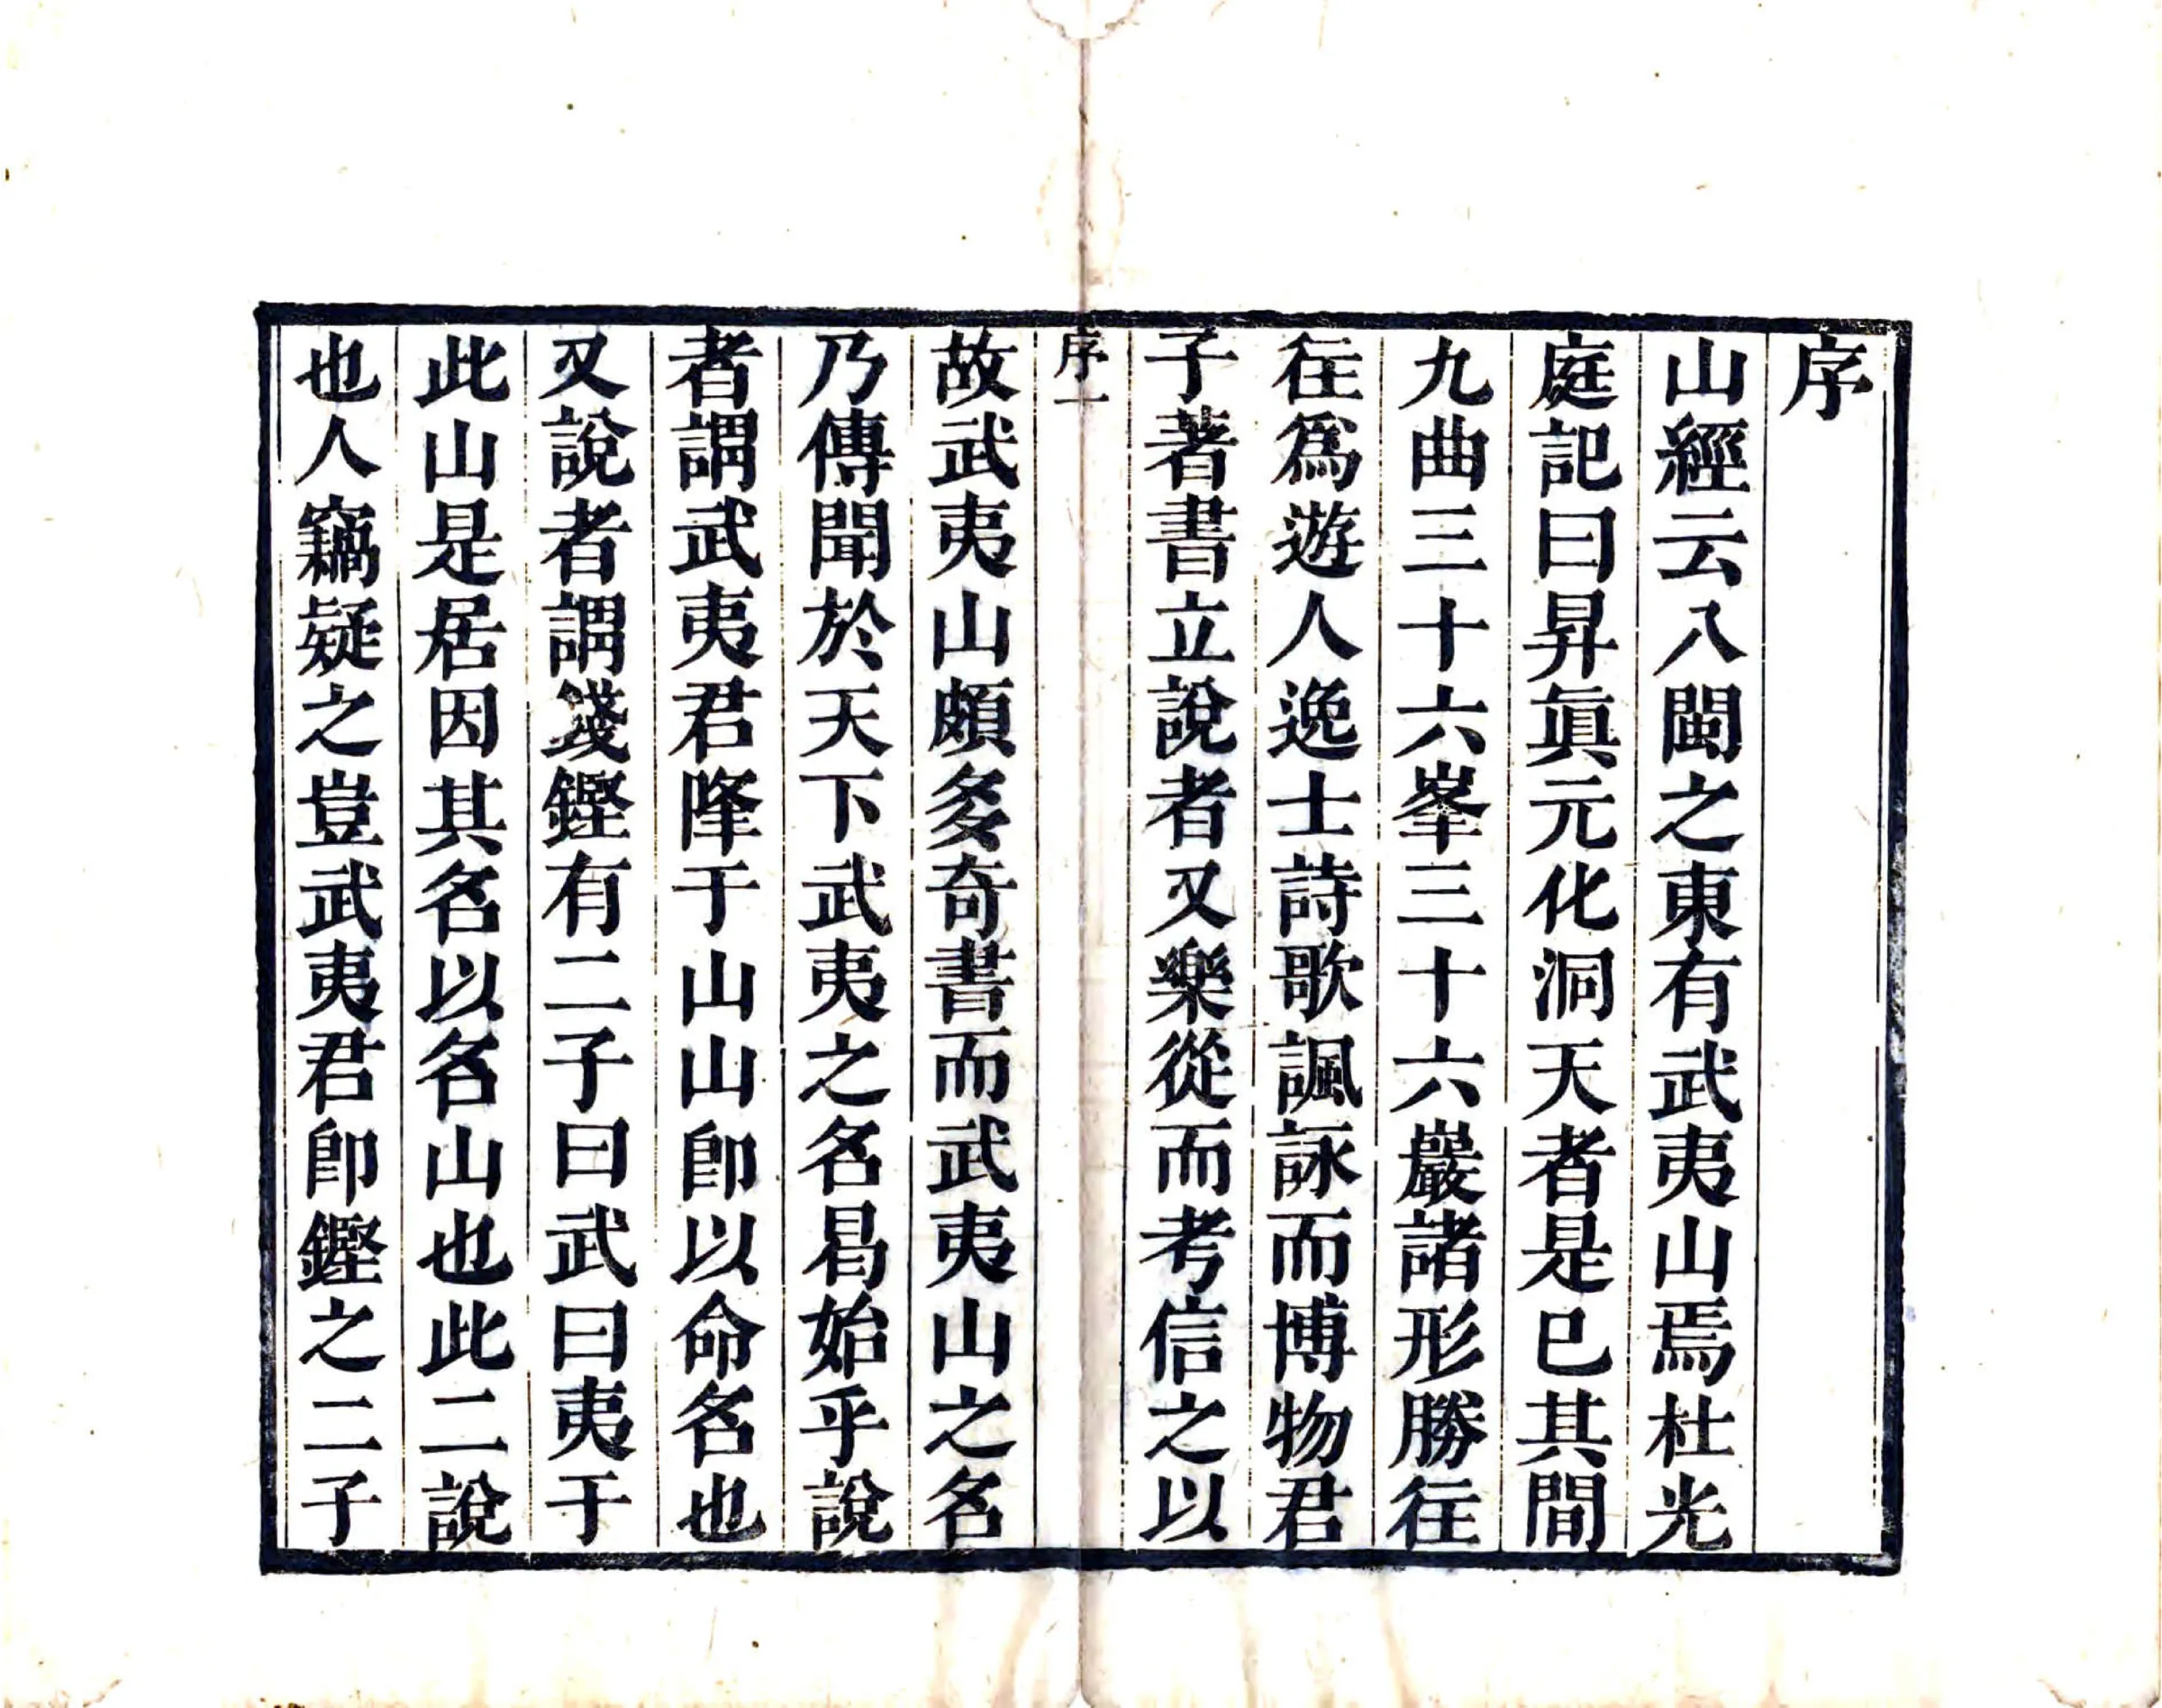 序
山經云八閩之東有武夷山焉杜光
庭記曰昇眞元化洞天者是已其間
九曲三十六峯三十六巖諸形勝徃
徃爲遊人逸士詩歌諷詠而博物君
子著書立說者又樂從而考信之以
序一
故武夷山頗多奇書而武夷山之名
乃傳聞於天下武夷之名曷始乎說
者謂武夷君降于山山卽以命名也
又說者謂籛鏗有二子曰武曰夷于
此山是居因其名以名山也此二說
也人竊疑之豈武夷君卽鏗之二子